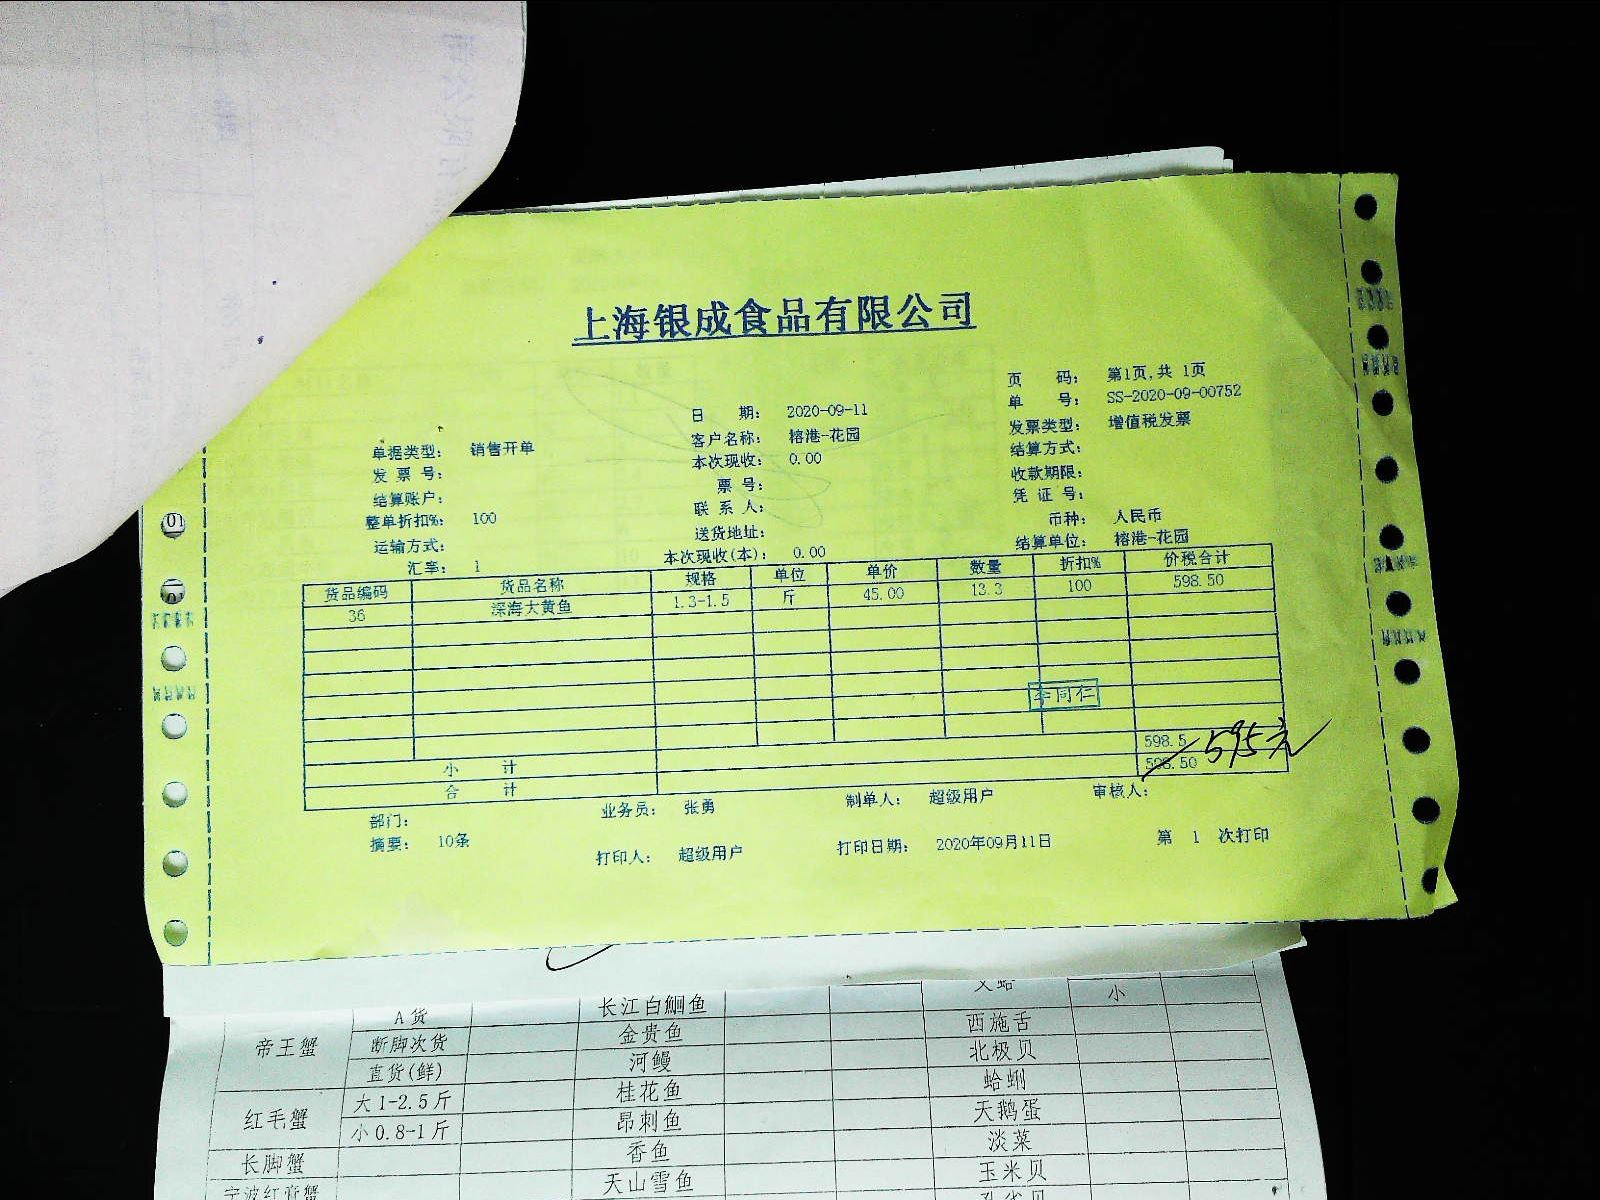 上海银成食品有限公司
页 码： 第1页,共 1页
日 期： 2020-09-11 单 号： SS-2020-09-00752
单据类型： 销售开单 客户名称： 榕港-花园 发票类型： 增值税发票
发 票 号： 本次现收： 0.00 结算方式：
结算账户： 票 号： 收款期限：
整单折扣%： 100 联 系 人： 凭 证 号：
运输方式： 送货地址： 币种： 人民币
汇率： 1 本次现收(本)： 0.00 结算单位： 榕港-花园
货品编码 货品名称 规格 单位 单价 数量 折扣% 价税合计
36 深海大黄鱼 1.3-1.5 斤 45.00 13.3 100 598.50
李同仁
小 计 598.5 595元
合 计 598.50
部门： 业务员： 张勇 制单人： 超级用户 审核人：
摘要： 10条 打印人： 超级用户 打印日期： 2020年09月11日 第 1 次打印
A货 长江白鮰鱼 小
帝王蟹 断脚次货 金贵鱼 西施舌
直货(鲜) 河鳗 北极贝
红毛蟹 大1-2.5斤 桂花鱼 蛤蜊
小0.8-1斤 昂刺鱼 天鹅蛋
长脚蟹 香鱼 淡菜
宁波红膏蟹 天山雪鱼 玉米贝